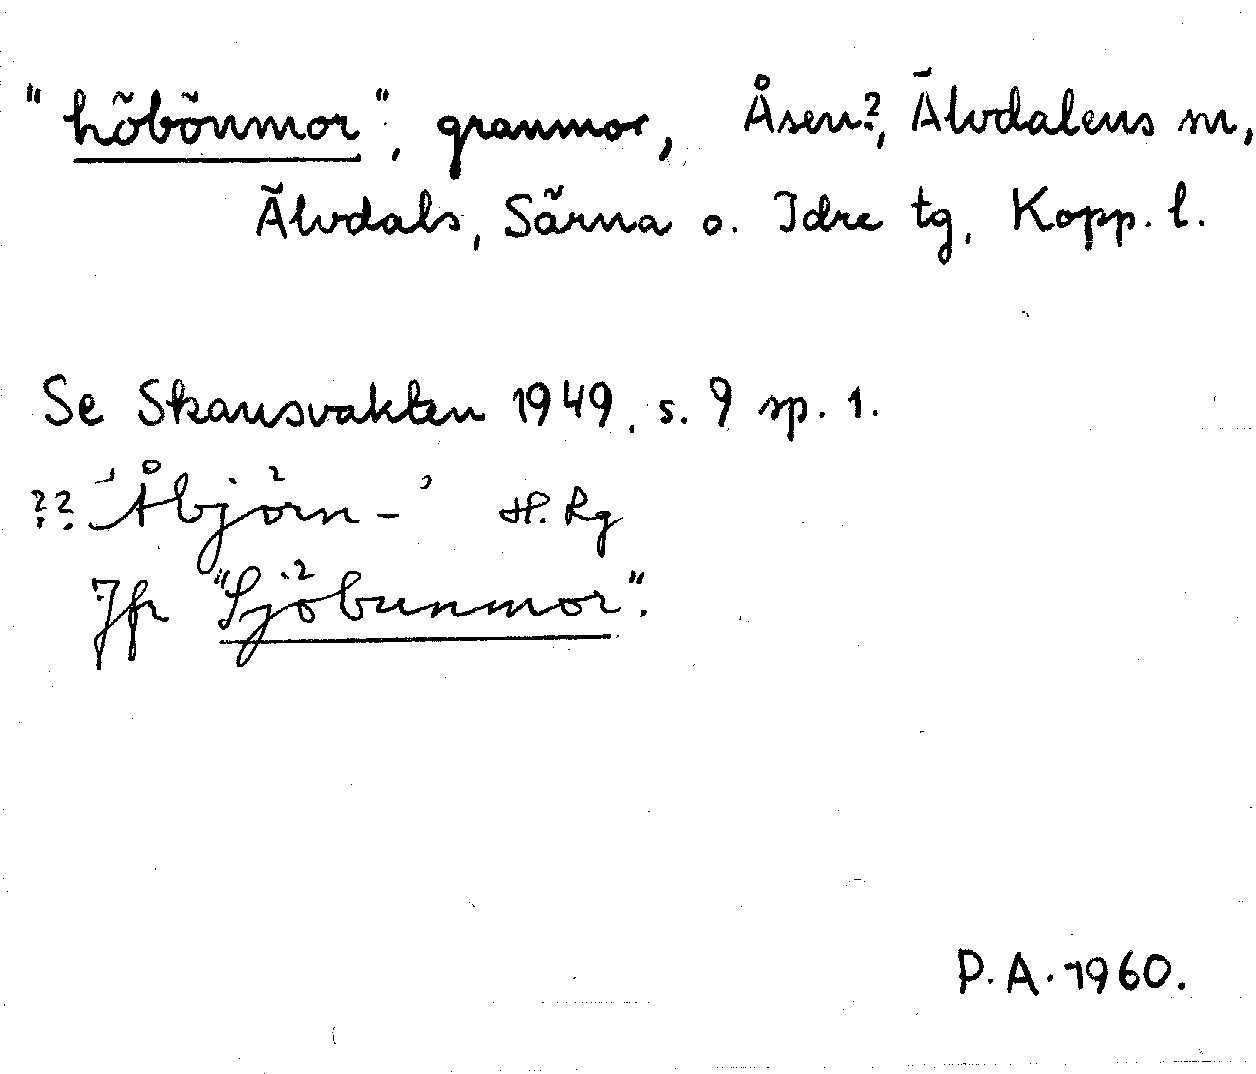 "höbönmor", granmor, Åsen?, Älvdalens sn,
Älvdals, Särna o. Idre tg, Kopp. l.
Se Skansvakten 1949, s. 9 sp. 1.
??'Åbjörn-' H. Rg
Jfr "Sjöbunmor".
P.A. 1960.